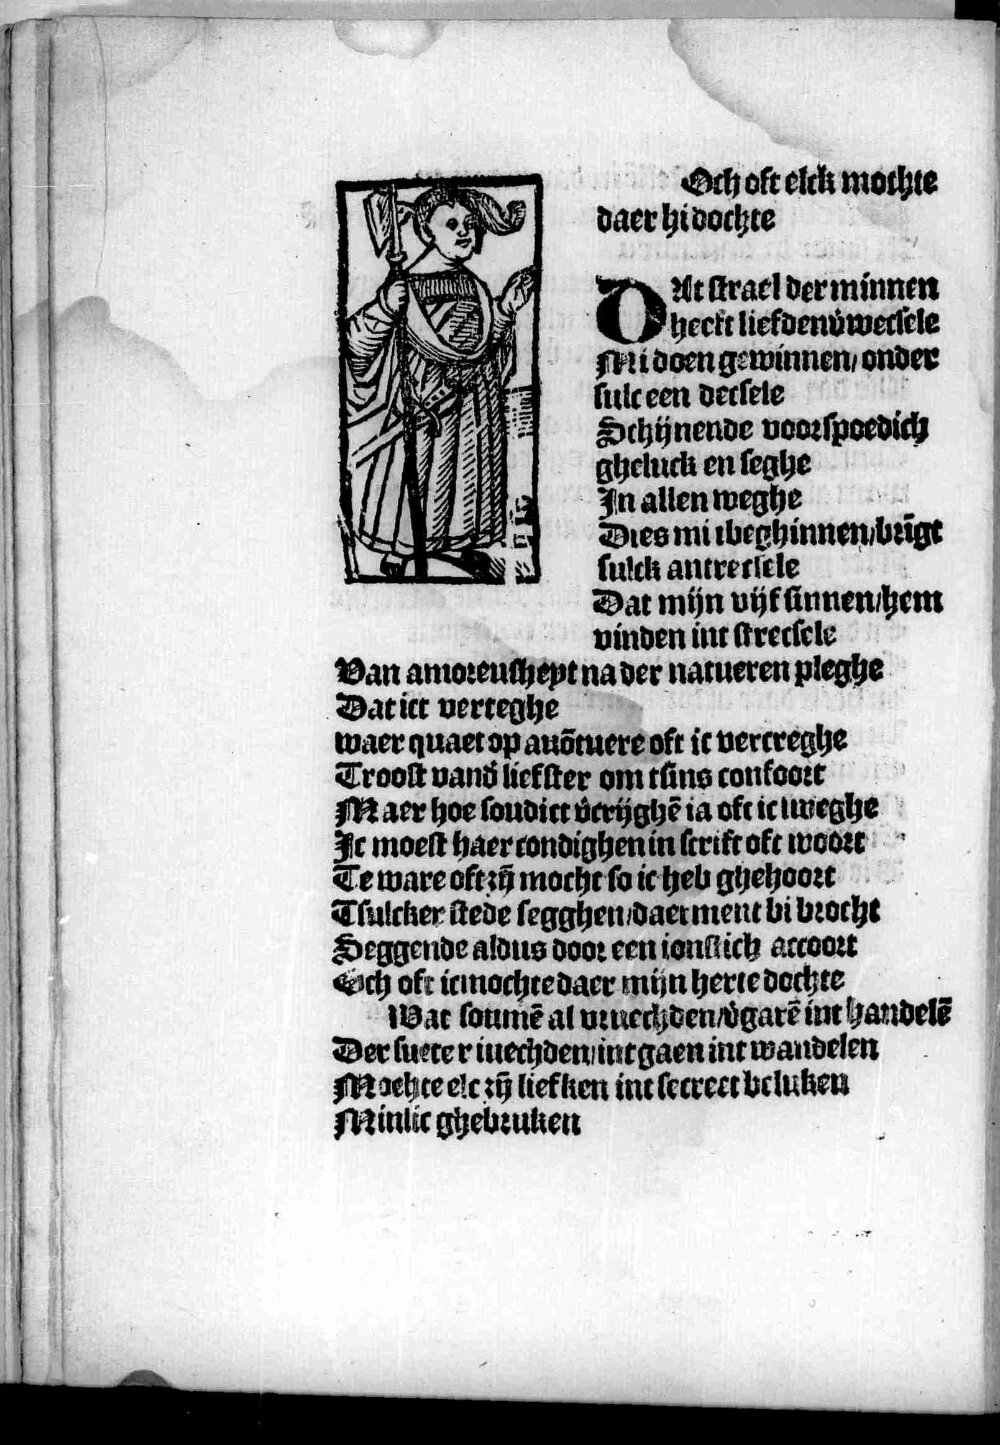 Och oft elck mochte
daer hi dochte
DAt strael der minnen
heeft liefden v̄wecsele
Mi doen gewinnen/onder
sulc een decsele
Schijnende voorspoedich
gheluck en seghe
In allen weghe
Dies mi tbeghinnen/brīgt
sulck antrecsele
Dat mijn vijf sinnen/hem
vinden int strecsele
Van amoreusheyt na der natueren pleghe
Dat ict verteghe
waer quaet op avōtuere oft ic vercreghe
Troost vanḋ liefster om tsins confoort
Maer hoe soudict v̄crijghē ia oft ic sweghe
Ic moest haer condighen in scrift oft woort
Te ware oft zȳ mocht so ic heb ghehoort
Tsulcker stede segghen/daerment bi brocht
Seggende aldus door een ionstich accoort
Och oft ic mochte daer mijn herte dochte
Wat soumē al vruechden/v̄garē int handelē
Der sueter iuechden/int gaen int wandelen
Mochte elc zȳ liefken int secreet beluken
Minlic ghebruken